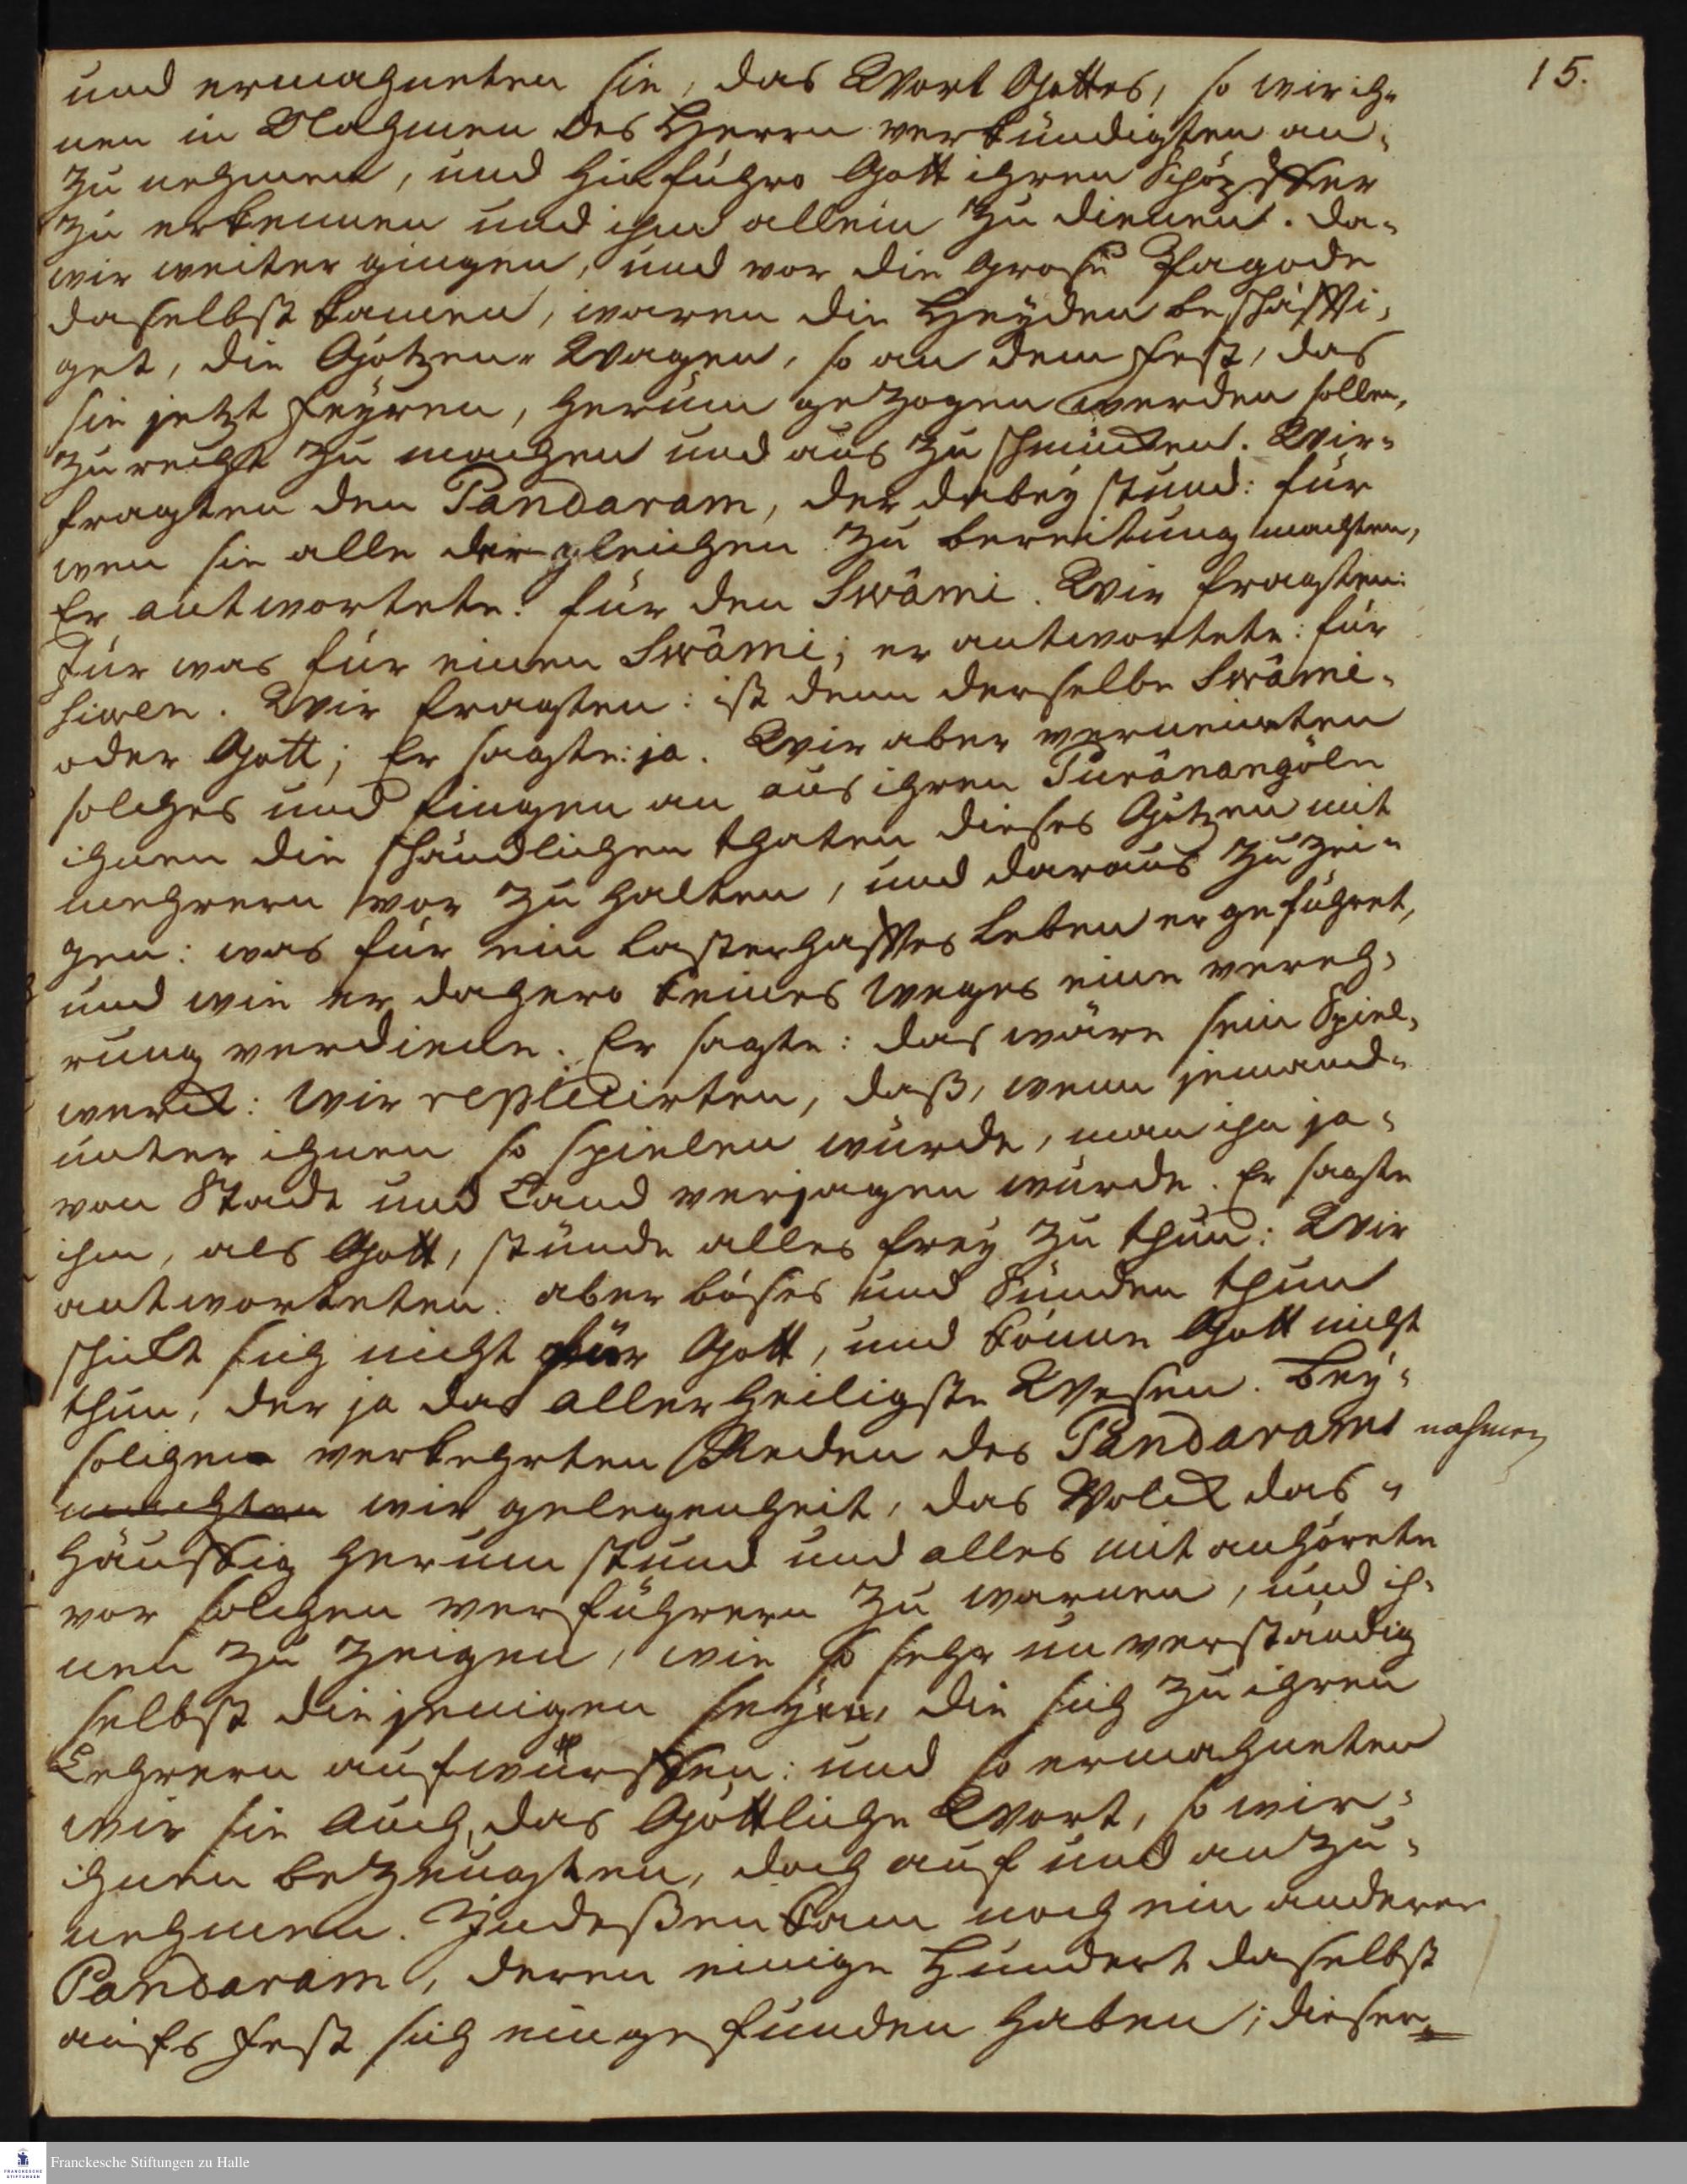 15.
und ermahneten sie, das Wort Gottes, so wir ih-
nen in Nahmen des Herrn verkündigten an-
zu nehmen, und hinführo Gott ihren Schöpffer
zu erkennen und ihm allein zu dienen. Da-
wir weiter gingen, und vor die grose Pagode
daselbst kamen, waren die Heyden beschäffti-
get, die Götzen-Wagen, so an dem Fest, das
sie jetzt feyren, herum gezogen werden sollen,
zu recht zu machen und aus zu schmücken. Wir-
fragten den Pandaram, der dabey stund: für
wen sie alle dergleichen zu bereitung machten,
Er antwortete: für den Swâmi. Wir fragten:
Für was für einen Swâmi; er antwortete: für
Siwen. Wir fragten: ist denn derselbe Swâmi-
oder Gott; Er sagte: ja. Wir aber verneinten
solches und fingen an aus ihren Purânangöln
ihnen die schändlichen thaten dieses Götzen mit
mehrern vor zu halten, und daraus zu zei-
gen: was für ein lasterhafftes Leben er geführet,
und wie er dahero keines weges eine vereh-
rung verdiene. Er sagte: das wäre sein Spiel-
werck: Wir replicirten, daß, wenn jemand-
unter ihnen so spielen würde, man ihn ja-
von Stadt und Land verjagen würde. Er sagte
ihm, als Gott, stünde alles frey zu thun: Wir
antworteten: aber böses und Sünden thun
schickt sich nicht für Gott, und könne Gott nicht
thun, der ja das allerheiligste Wesen. Bey-
solchen verkehrten Reden des Pandarams nahmen
machten wir gelegenheit, das Volck das-
häuffig herum stund und alles mit anhörete
vor solchen verführern zu warnen, und ih-
nen zu zeigen, wie so sehr unverständig
selbst diejenigen seyen, die sich zu ihren
Lehrern aufwürffen: und so ermahneten
wir sie auch, das Göttliche Wort, so wir-
ihnen bezeugten, doch auf und anzu-
nehmen. Indeßen kam noch ein anderer
Pandaram, deren einige Hundert daselbst
aufs Fest sich eingefunden haben; dieser-
Franckesche Stiftungen zu Halle
FRANCKESCHE
STIFTUNGEN